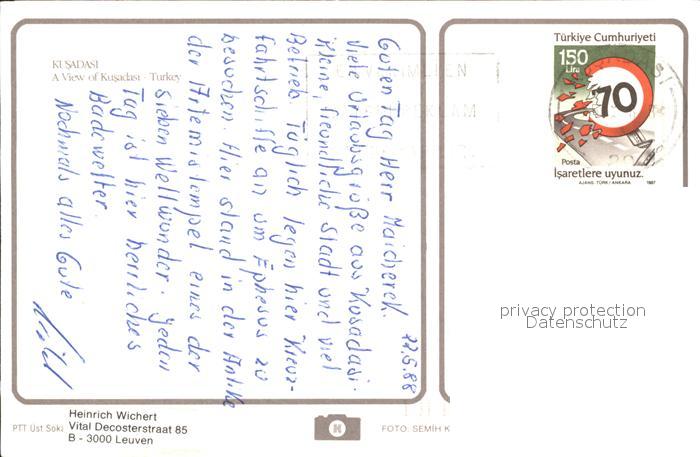 KUŞADASI
A View of Kuşadası - Turkey
12.5.88
Guten Tag Herr Maicherek.
Viele Urlaubsgrüße aus Kusadasi.
Kleine, freundliche Stadt und viel
Betrieb. Täglich legen hier Kreuz-
fahrtschiffe an um Ephesus zu
besuchen. Hier stand in der Antike
der Artemistempel eines der
sieben Weltwunder. Jeden
Tag ist hier herrliches
Badewetter.
Nochmals alles Gute
PTT Üst Sok
Heinrich Wichert
Vital Decosterstraat 85
B - 3000 Leuven
FOTO: SEMİH K
Türkiye Cumhuriyeti
150
Lira
70
Posta
İşaretlere uyunuz.
AJANS TÜRK / ANKARA 1987
privacy protection
Datenschutz